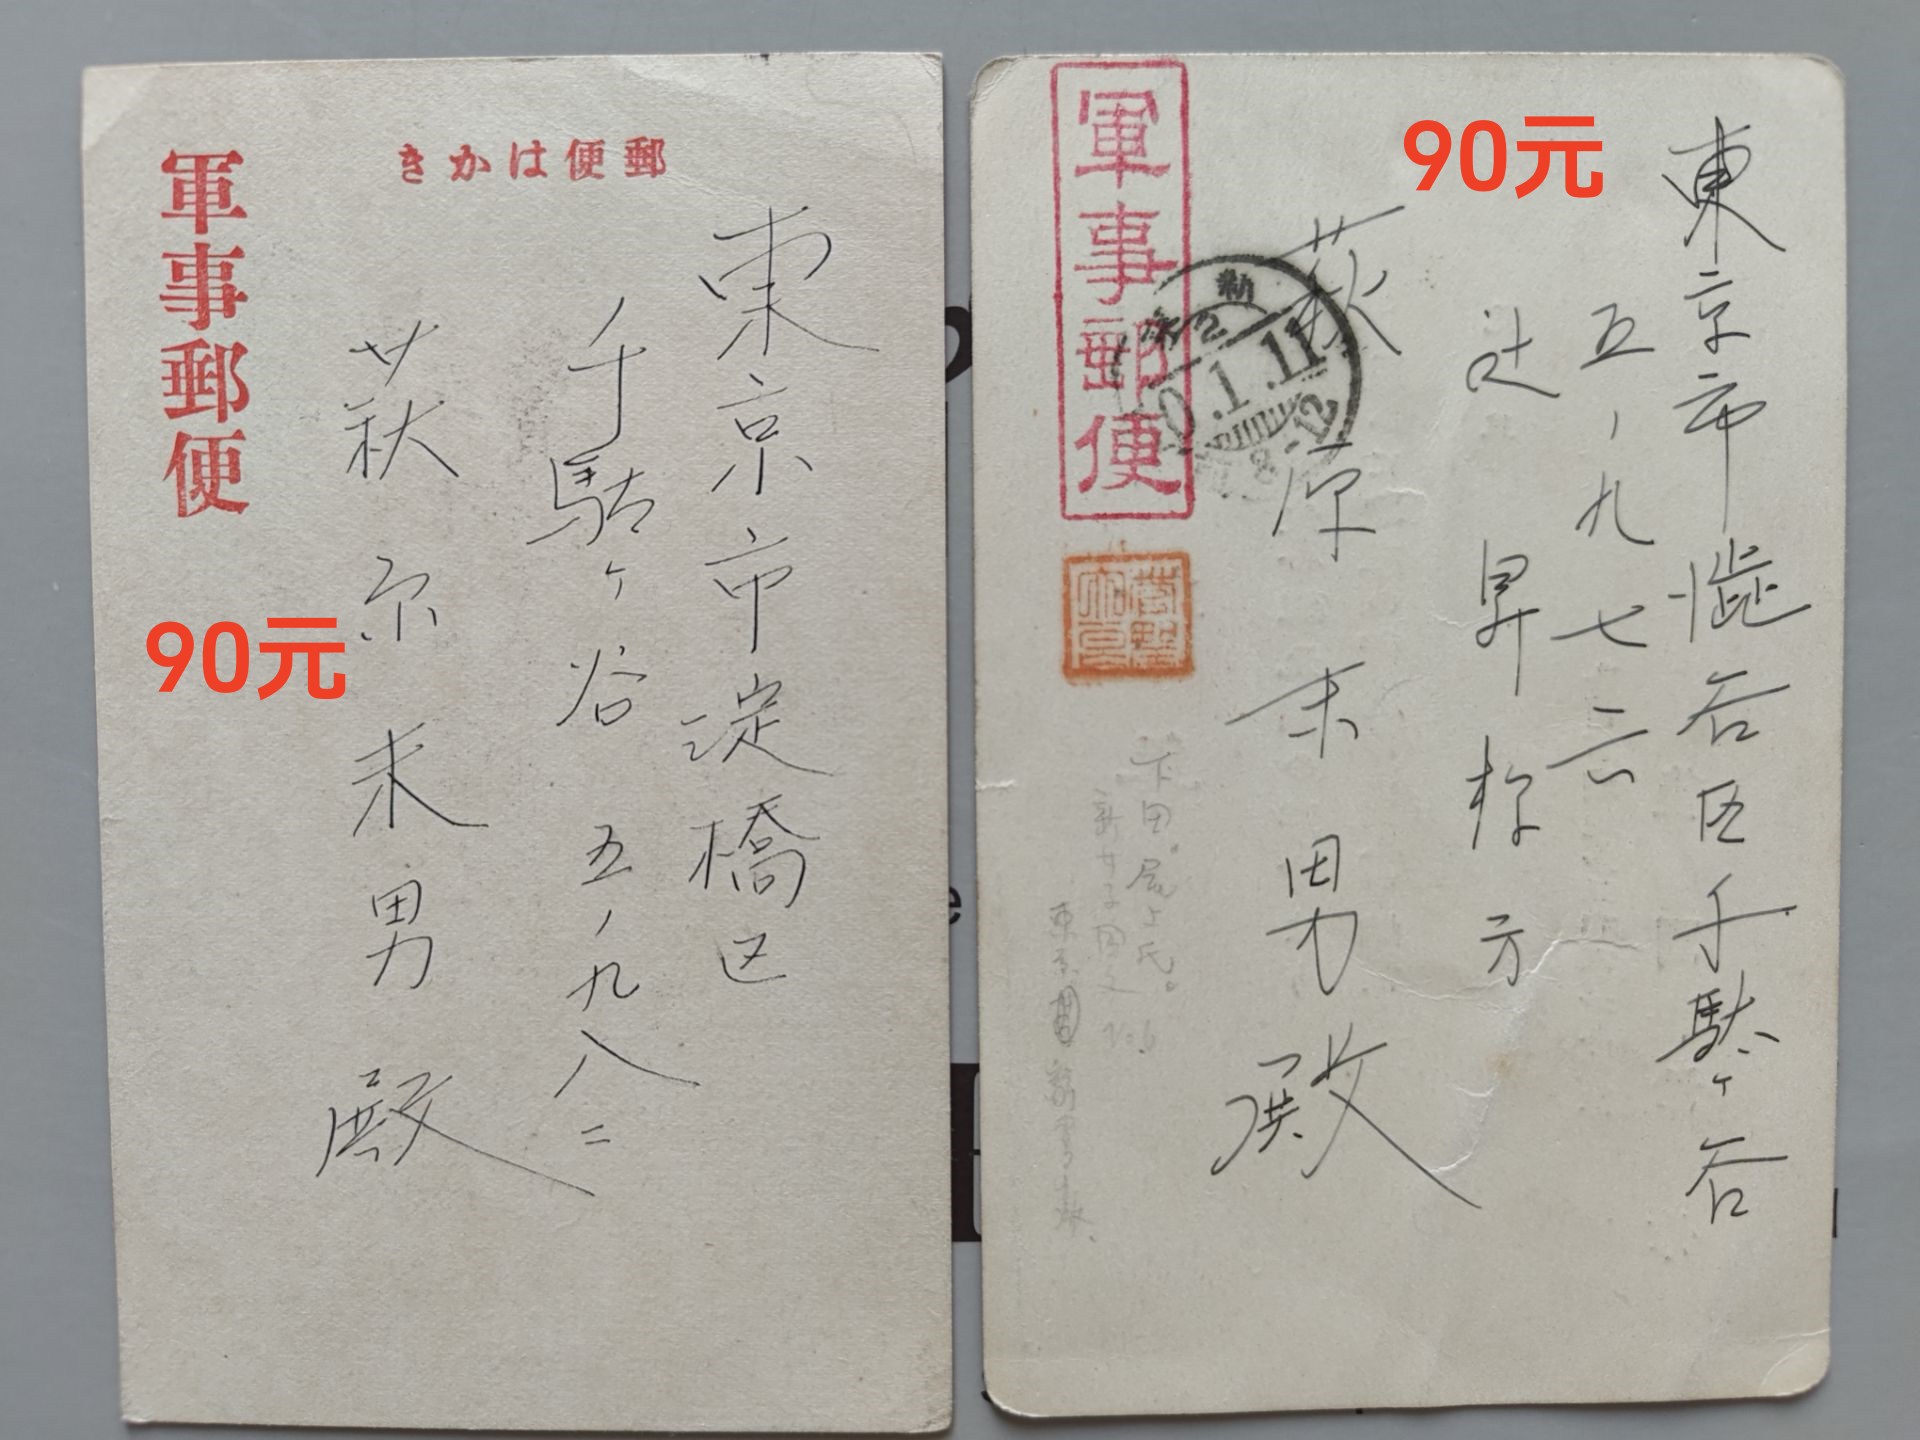 郵便はかき
軍事郵便
東京市淀橋区
千駄ヶ谷五ノ九八二
萩原末男殿
90元
90元
軍事郵便
東京市澁谷区千駄ヶ谷
五ノ九七六
辻昇様方
萩原末男殿